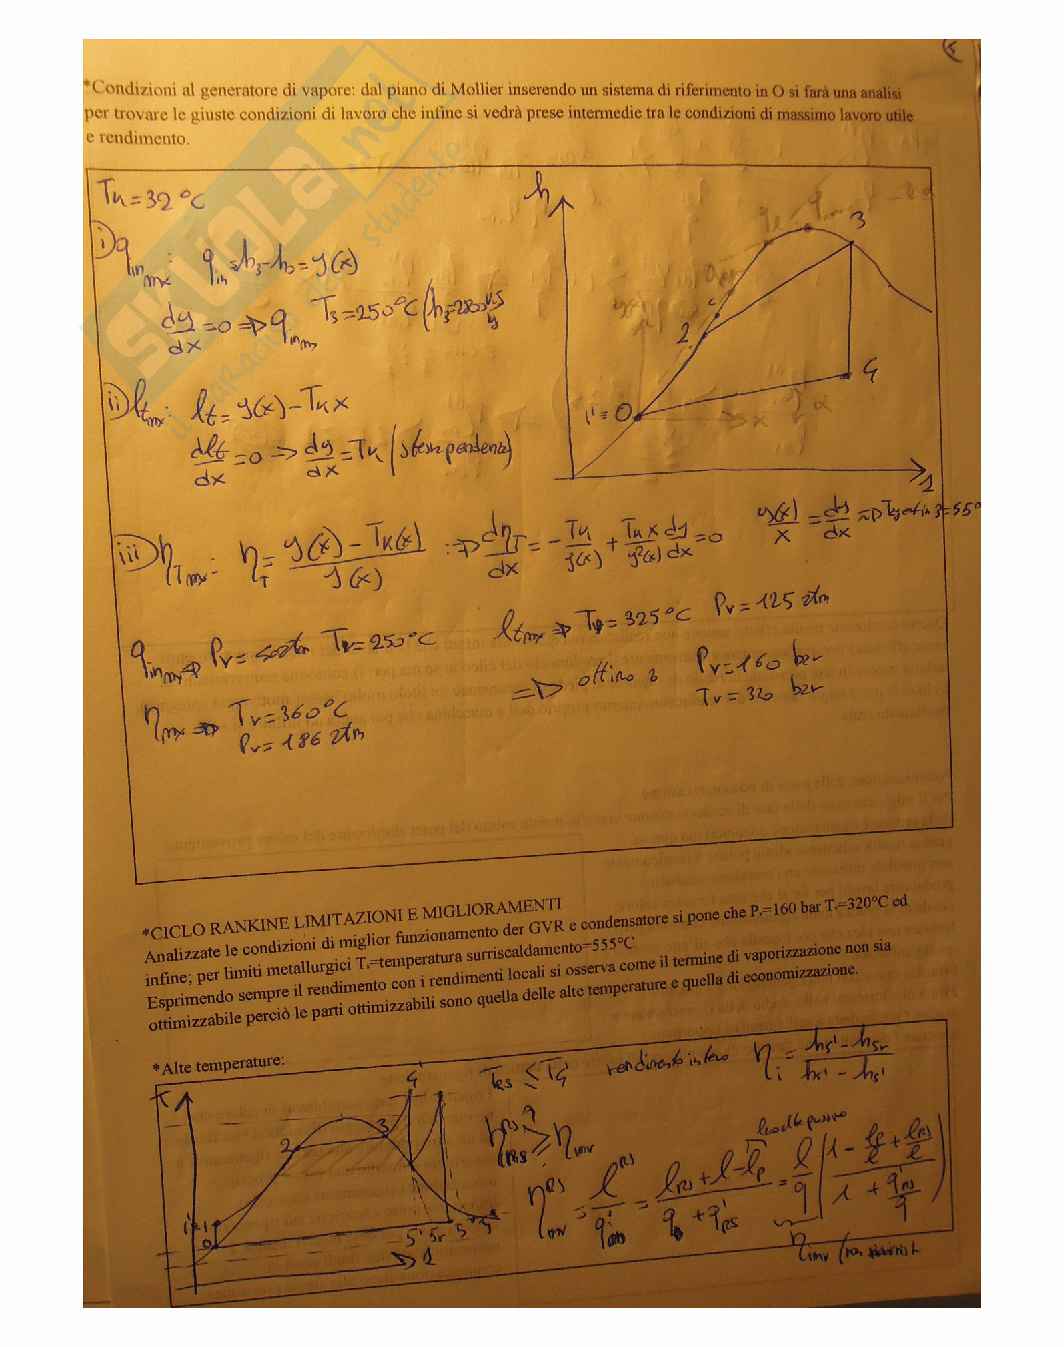 *Condizioni al generatore di vapore: dal piano di Mollier inserendo un sistema di riferimento in O si farà una analisi
per trovare le giuste condizioni di lavoro che infine si vedrà prese intermedie tra le condizioni di massimo lavoro utile
e rendimento.
Tk = 32 °C
i) q in mx : q in = h3 - h0 = y(x)
dy/dx = 0 => q in mx T3 = 250°C (h3 = 2800
ii) lt mx : lt = y(x) - Tk x
dlt/dx = 0 => dy/dx = Tk (stessa pendenza)
h
3
2
4
1' ≡ 0
x
iii) ηT mx : ηT = y(x) - Tk(x) / y(x) => dηT/dx = - Tk/y(x) + Tk x/y²(x) dy/dx = 0 y(x)/x = dy/dx => Tg at in 3 = 55°
q in mx => Pv = Tv = 250°C
lt mx => Tv = 325°C Pv = 125 atm
η mx => Tv = 360°C
Pv = 186 atm
=> ottimo 3 Pv = 160 bar
Tv = 320 bar
*CICLO RANKINE LIMITAZIONI E MIGLIORAMENTI
Analizzate le condizioni di miglior funzionamento der GVR e condensatore si pone che Pv=160 bar Tv=320°C ed
infine; per limiti metallurgici Ts=temperatura surriscaldamento=555°C
Esprimendo sempre il rendimento con i rendimenti locali si osserva come il termine di vaporizzazione non sia
ottimizzabile perciò le parti ottimizzabili sono quella delle alte temperature e quella di economizzazione.
*Alte temperature:
4'
2
3
0
5' 5r 5
TRS ≤ T4' rendimento interno ηi = h5' - h5r / h5' - h5'
ηRS ≥ ηinv
lavoro di pompa
η RS inv = l RS / q' in = lRS + l - lp / q + q'RS = l/q (1 - lp/l + lRS/l / 1 + q'RS/q)
ηinv (non
skuola.net